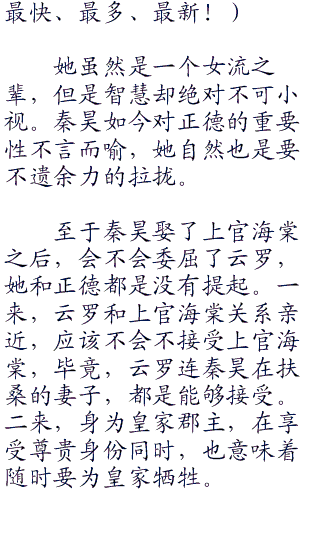 最快、最多、最新！）
她虽然是一个女流之
辈，但是智慧却绝对不可小
视。秦昊如今对正德的重要
性不言而喻，她自然也是要
不遗余力的拉拢。
至于秦昊娶了上官海棠
之后，会不会委屈了云罗，
她和正德都是没有提起。一
来，云罗和上官海棠关系亲
近，应该不会不接受上官海
棠，毕竟，云罗连秦昊在扶
桑的妻子，都是能够接受。
二来，身为皇家郡主，在享
受尊贵身份同时，也意味着
随时要为皇家牺牲。